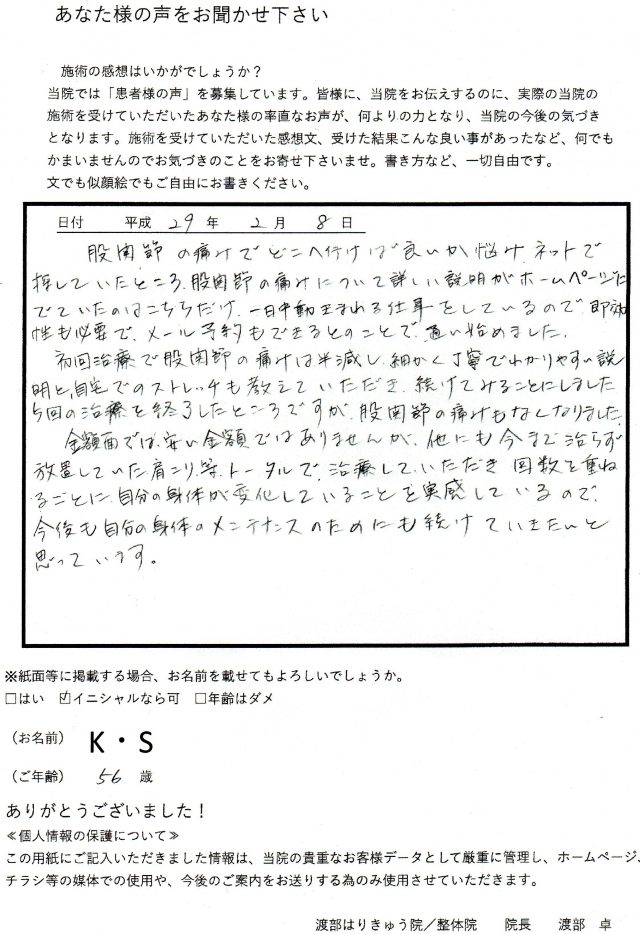 あなた様の声をお聞かせ下さい
施術の感想はいかがでしょうか？
当院では「患者様の声」を募集しています。皆様に、当院をお伝えするのに、実際の当院の
施術を受けていただいたあなた様の率直なお声が、何よりの力となり、当院の今後の気づき
となります。施術を受けていただいた感想文、受けた結果こんな良い事があったなど、何でも
かまいませんのでお気づきのことをお寄せ下さいませ。書き方など、一切自由です。
文でも似顔絵でもご自由にお書きください。
日付 平成 29 年 2 月 8 日
股関節の痛みでどこへ行けば良いか悩み、ネットで
探していたところ、股関節の痛みについて詳しい説明がホームページに
でていたのはこちらだけ、一日中動きまわる仕事をしているので、即効
性も必要で、メール予約もできるとのことで、通い始めました。
初回治療で股関節の痛みは半減し、細かく丁寧でわかりやすい説
明と、自宅でのストレッチも教えていただき、続けてみることにしました
5回の治療を終了したところですが、股関節の痛みもなくなりました。
金額面では、安い金額ではありませんが、他にも今まで治らず
放置していた肩こり等、トータルで治療していただき 回数を重ね
るごとに、自分の身体が変化していることを実感しているので、
今後も自分の身体のメンテナンスのためにも続けていきたいと
思っています。
※紙面等に掲載する場合、お名前を載せてもよろしいでしょうか。
□はい ☑イニシャルなら可 □年齢はダメ
（お名前） K・S
（ご年齢） 56 歳
ありがとうございました！
≪個人情報の保護について≫
この用紙にご記入いただきました情報は、当院の貴重なお客様データとして厳重に管理し、ホームページ、
チラシ等の媒体での使用や、今後のご案内をお送りする為のみ使用させていただきます。
渡部はりきゅう院／整体院 院長 渡部 卓